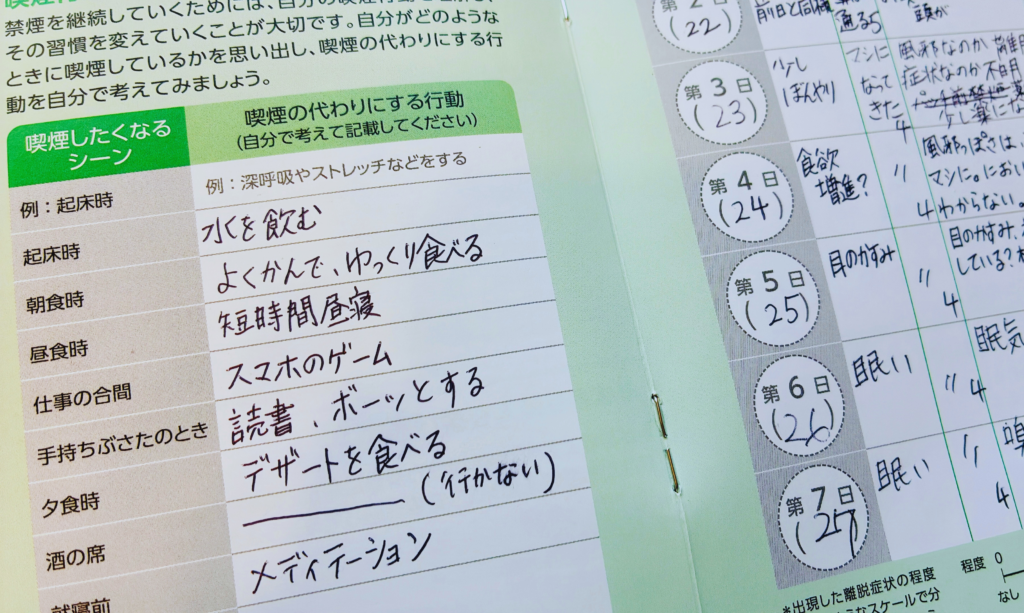 禁煙を継続していくためには、自分の喫煙行動を
その習慣を変えていくことが大切です。自分がどのような
ときに喫煙しているかを思い出し、喫煙の代わりにする行
動を自分で考えてみましょう。
喫煙したくなる
シーン
喫煙の代わりにする行動
(自分で考えて記載してください)
例：起床時
例：深呼吸やストレッチなどをする
起床時
水を飲む
朝食時
よくかんで、ゆっくり食べる
昼食時
短時間昼寝
仕事の合間
スマホのゲーム
手持ちぶさたのとき
読書、ボーッとする
夕食時
デザートを食べる
酒の席
(行かない)
就寝前
メディテーション
第2日
(22)
前日と同様
通る5
頭が
第3日
(23)
少し
ぼんやり
マシに
なって
きた
4
風邪なのか離
症状なのか不明
少し楽にな
第4日
(24)
食欲
増進?
〃
4
風邪っぽさは、
マシに。におい
わからない。
第5日
(25)
目のかすみ
〃
4
目のかすみ、
している?
第6日
(26)
眠い
〃
4
眠気
第7日
(27)
眠い
〃
4
嗅
*出現した離脱症状の程度
なスケールで分
程度 0
なし